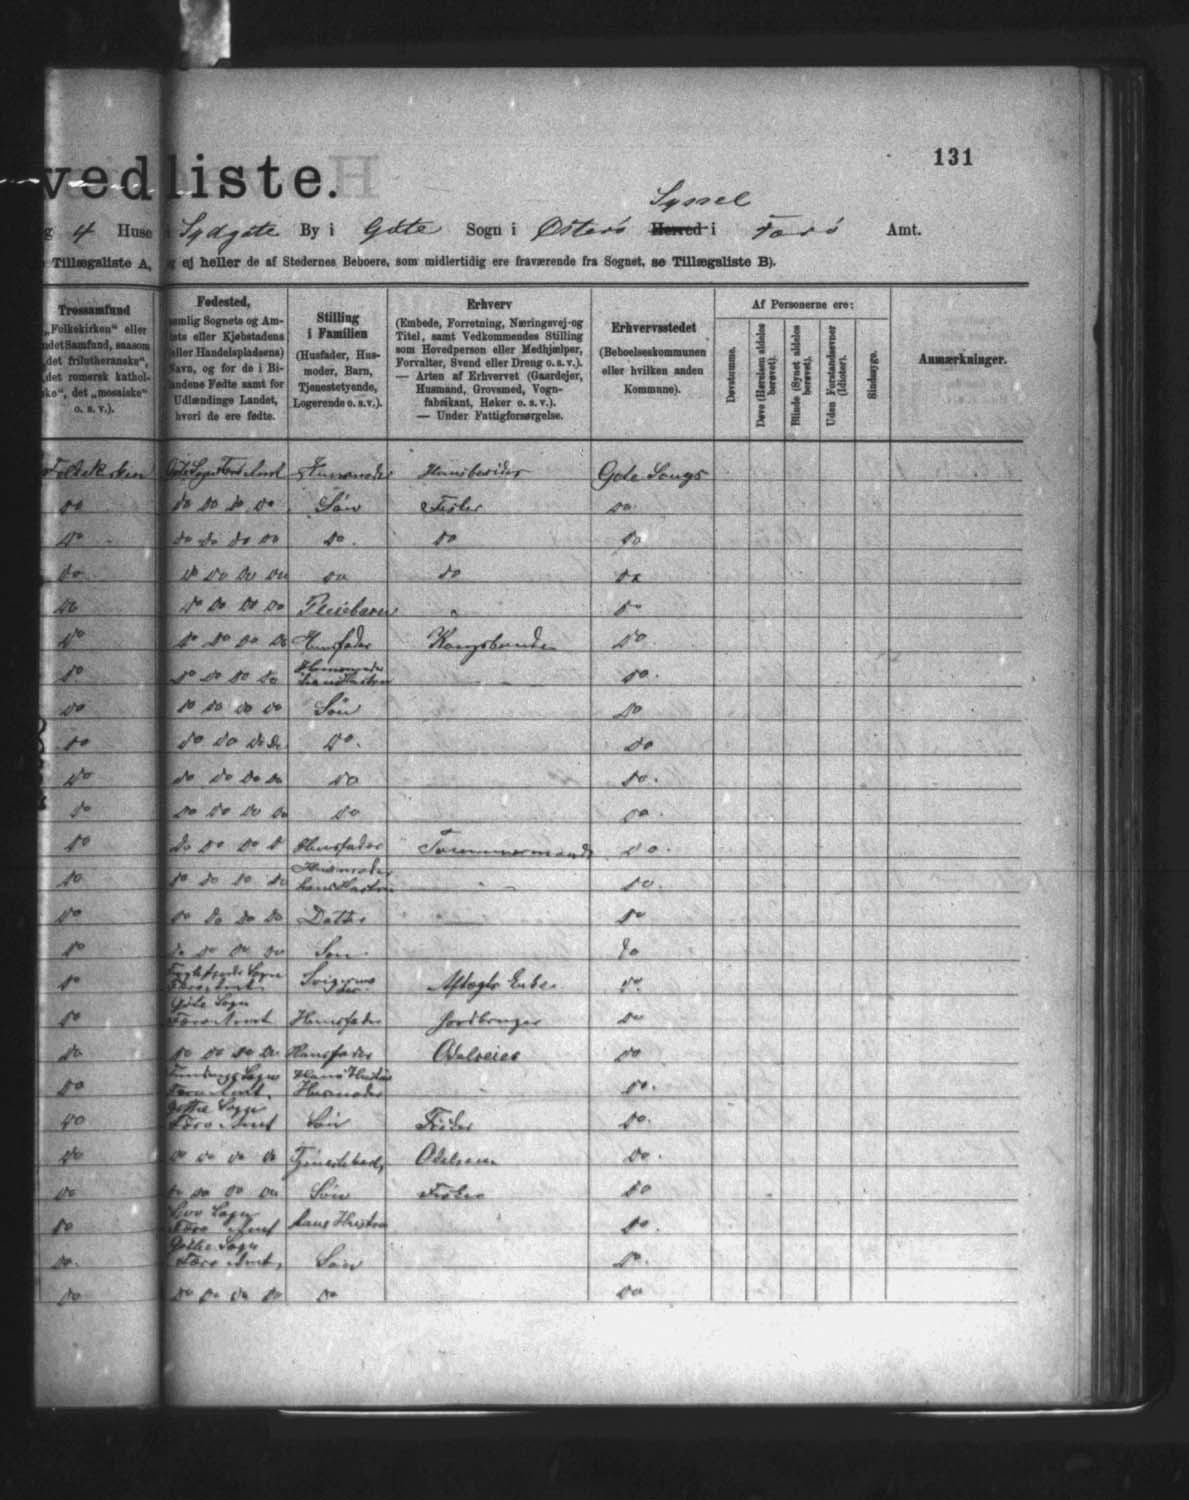 131
vedliste.
Syssel
g 4 Huse i Sydgöte By i Göte Sogn i Österö Herred i Færö Amt.
Tillægsliste A, og ej heller de af Stedernes Beboere, som midlertidig ere fraværende fra Sognet, se Tillægsliste B).
Trossamfund
„Folkekirken“ eller
ndet Samfund, saasom
„det frilutheranske“,
„det romersk kathol-
ske“, det „mosaiske“
o. s. v.).
Fødested,
nemlig Sognets og Am-
tets eller Kjøbstadens
(eller Handelspladsens)
Navn, og for de i Bi-
landene Fødte samt for
Udlændinge Landet,
hvori de ere fødte.
Stilling
i Familien
(Husfader, Hus-
moder, Barn,
Tjenestetyende,
Logerende o. s. v.).
Erhverv
(Embede, Forretning, Næringsvej og
Titel, samt Vedkommendes Stilling
som Hovedperson eller Medhjælper,
Forvalter, Svend eller Dreng o. s. v.).
— Arten af Erhvervet (Gaardejer,
Husmand, Grovsmed, Vogn-
fabrikant, Høker o. s. v.).
— Under Fattigforsørgelse.
Erhvervsstedet
(Beboelseskommunen
eller hvilken anden
Kommune).
Af Personerne ere:
Døvstumme.
Døve (Hørelsen aldeles
berøvet).
Blinde (Synet aldeles
berøvet).
Uden Forstandsevner
(Idioter).
Sindssyge.
Anmærkninger.
Folkekirken Göte Sogn Færö Amt Husmoder Huusbesidder Göte Sogns
do do do do do Sön Fisker do
do do do do do do. do do
do do do do do do do do
do do do do do Pleiebarn " do
do do do do do Husfader Kongsbonde do.
do do do do do Husmoder
hans Hustru — do.
do do do do do Sön do
do do do do do do. do
do do do do do do do.
do do do do do do do.
do do do do do Husfader Tømmermand do.
do do do do do Husmoder
hans Hustru — do.
do do do do do Datter do
do do do do do Sön do
do Sogn
Færö Amt Svigermo
der Aftægts Enke do.
do Göte Sogn
Færö Amt Husfader Jordbruger do
do do do do do Husfader Odelseier do
do Sogn
Færö Amt. Hans Hustru
Husmoder do.
do Göthe Sogn
Færö Amt Sön Fisker do.
do do do do do do.
do do do do do Sön Fisker do
do Sogn
Færö Amt hans Hustru do.
do. Göthe Sogn
Færö Amt. Sön do.
do do do do do do do